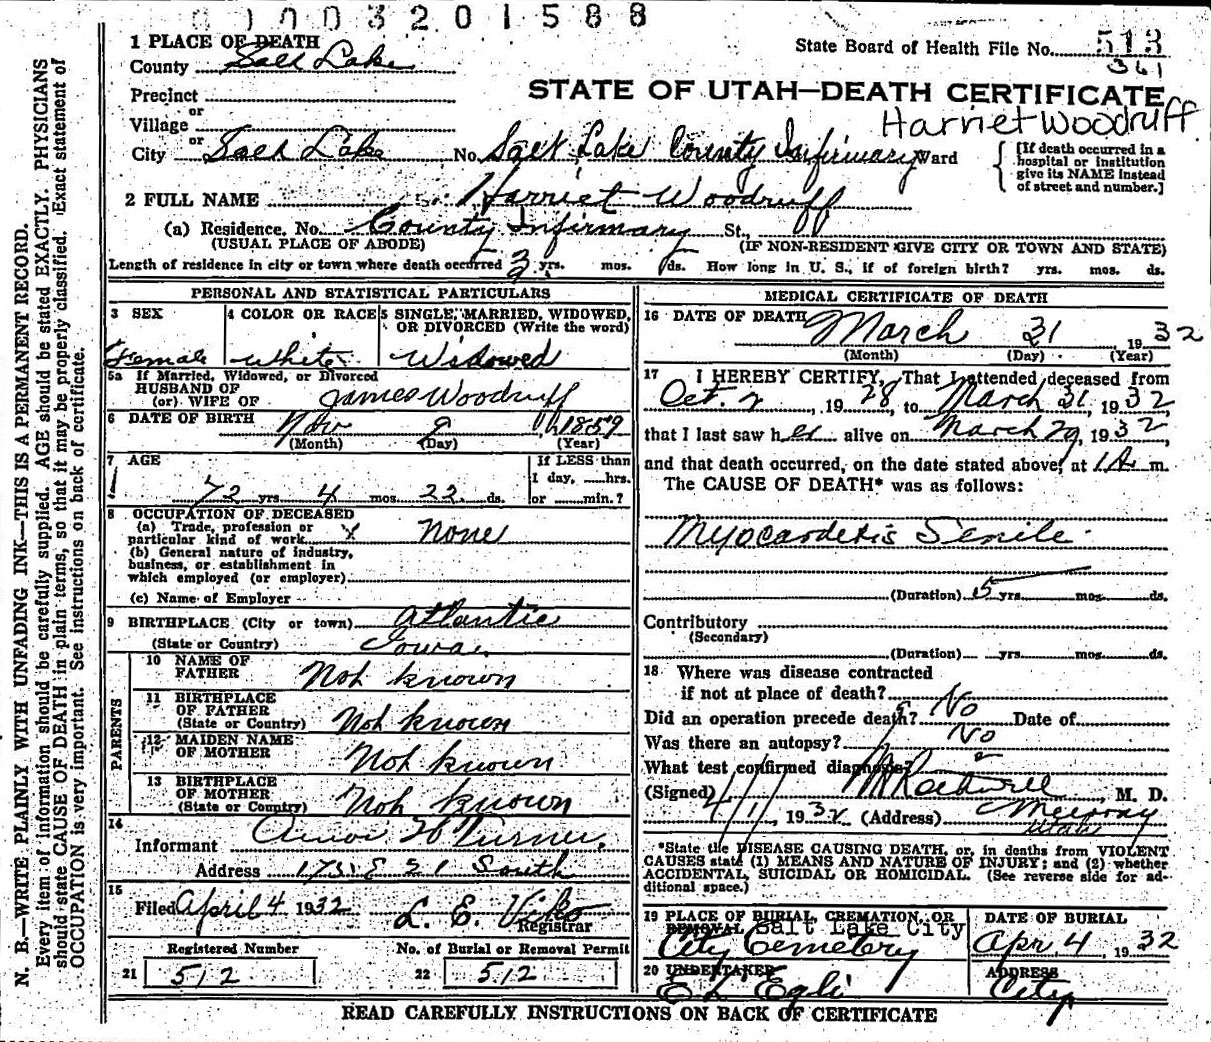 0 1 0 0 3 2 0 1 5 8 8
1 PLACE OF DEATH
County Salt Lake
State Board of Health File No. 513
361
STATE OF UTAH—DEATH CERTIFICATE
Harriet Woodruff
Precinct
or
Village
or
City Salt Lake No. Salt Lake County Infirmary Ward
[If death occurred in a
hospital or institution
give its NAME instead
of street and number.]
2 FULL NAME Harriet Woodruff
(a) Residence, No. County Infirmary St.,
(USUAL PLACE OF ABODE) (IF NON-RESIDENT GIVE CITY OR TOWN AND STATE)
Length of residence in city or town where death occurred yrs. mos. ds. How long in U. S., if of foreign birth? yrs. mos. ds.
PERSONAL AND STATISTICAL PARTICULARS
3 SEX
Female
4 COLOR OR RACE
White
5 SINGLE, MARRIED, WIDOWED,
OR DIVORCED (Write the word)
Widowed
5a If Married, Widowed, or Divorced
HUSBAND OF
(or) WIFE OF James Woodruff
6 DATE OF BIRTH Nov 9 1859
(Month) (Day) (Year)
7 AGE
72 yrs 4 mos 22 ds.
If LESS than
1 day, hrs.
or min.?
8 OCCUPATION OF DECEASED
(a) Trade, profession or
particular kind of work x None
(b) General nature of industry,
business, or establishment in
which employed (or employer)
(c) Name of Employer
9 BIRTHPLACE (City or town) Atlantic
(State or Country) Iowa
PARENTS
10 NAME OF
FATHER Not known
11 BIRTHPLACE
OF FATHER
(State or Country) Not known
12 MAIDEN NAME
OF MOTHER Not known
13 BIRTHPLACE
OF MOTHER
(State or Country) Not known
14
Informant Turner
Address 1731 E 21 South
15
Filed April 4 1932 L. E. Viko
Registrar
Registered Number
21 512
No. of Burial or Removal Permit
22 512
MEDICAL CERTIFICATE OF DEATH
16 DATE OF DEATH March 31 1932
(Month) (Day) (Year)
17 I HEREBY CERTIFY, That I attended deceased from
Oct. 2, 1928, to March 31, 1932
that I last saw her alive on March 29, 1932,
and that death occurred, on the date stated above, at 1 A m.
The CAUSE OF DEATH* was as follows:
Myocardetis Senile
(Duration) 5 yrs. mos. ds.
Contributory
(Secondary)
(Duration) yrs. mos. ds.
18 Where was disease contracted
if not at place of death?
Did an operation precede death? No Date of
Was there an autopsy? No
What test confirmed diagnosis?
(Signed) , M. D.
4/1/, 1932 (Address) Murray
Utah
*State the DISEASE CAUSING DEATH, or, in deaths from VIOLENT
CAUSES state (1) MEANS AND NATURE OF INJURY; and (2) whether
ACCIDENTAL, SUICIDAL OR HOMICIDAL. (See reverse side for ad-
ditional space.)
19 PLACE OF BURIAL, CREMATION, OR
REMOVAL Salt Lake City
City Cemetery
DATE OF BURIAL
Apr. 4, 1932
20 UNDERTAKER
E L Egli
ADDRESS
City
READ CAREFULLY INSTRUCTIONS ON BACK OF CERTIFICATE
N. B.—WRITE PLAINLY WITH UNFADING INK—THIS IS A PERMANENT RECORD.
Every item of information should be carefully supplied. AGE should be stated EXACTLY. PHYSICIANS
should state CAUSE OF DEATH in plain terms, so that it may be properly classified. Exact statement of
OCCUPATION is very important. See instructions on back of certificate.